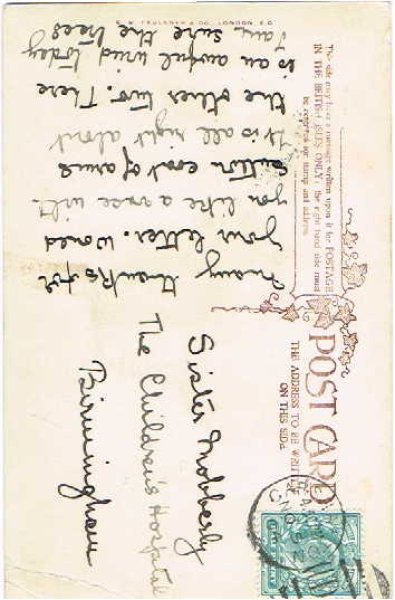 This side may have a message written upon it for POSTAGE
IN THE BRITISH ISLES ONLY; the right hand side must
be reserved for stamp and address.
POST CARD
THE ADDRESS TO BE WRITTEN
ON THIS SIDE
Many thanks for
your letter. Would
you like a with
Sutton coat of arms
It is all right about
the other two. There
is an awful wind today
I am sure the trees
Sister Mobberly
The Children's Hospital
Birmingham
C. W. FAULKNER & CO., LONDON, E.C.